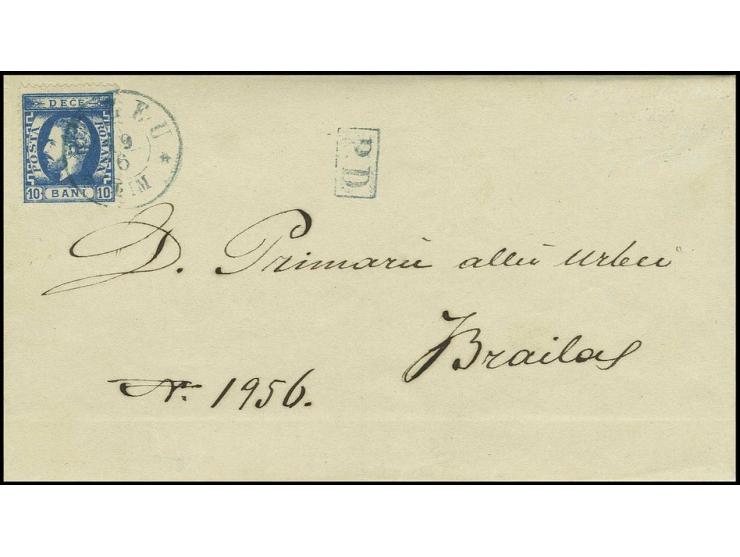 DECE
POSTA ROMANA
10 BANI 10
9
6
P.D.
D. Primarŭ allŭ urbei
Braila
N. 1956.